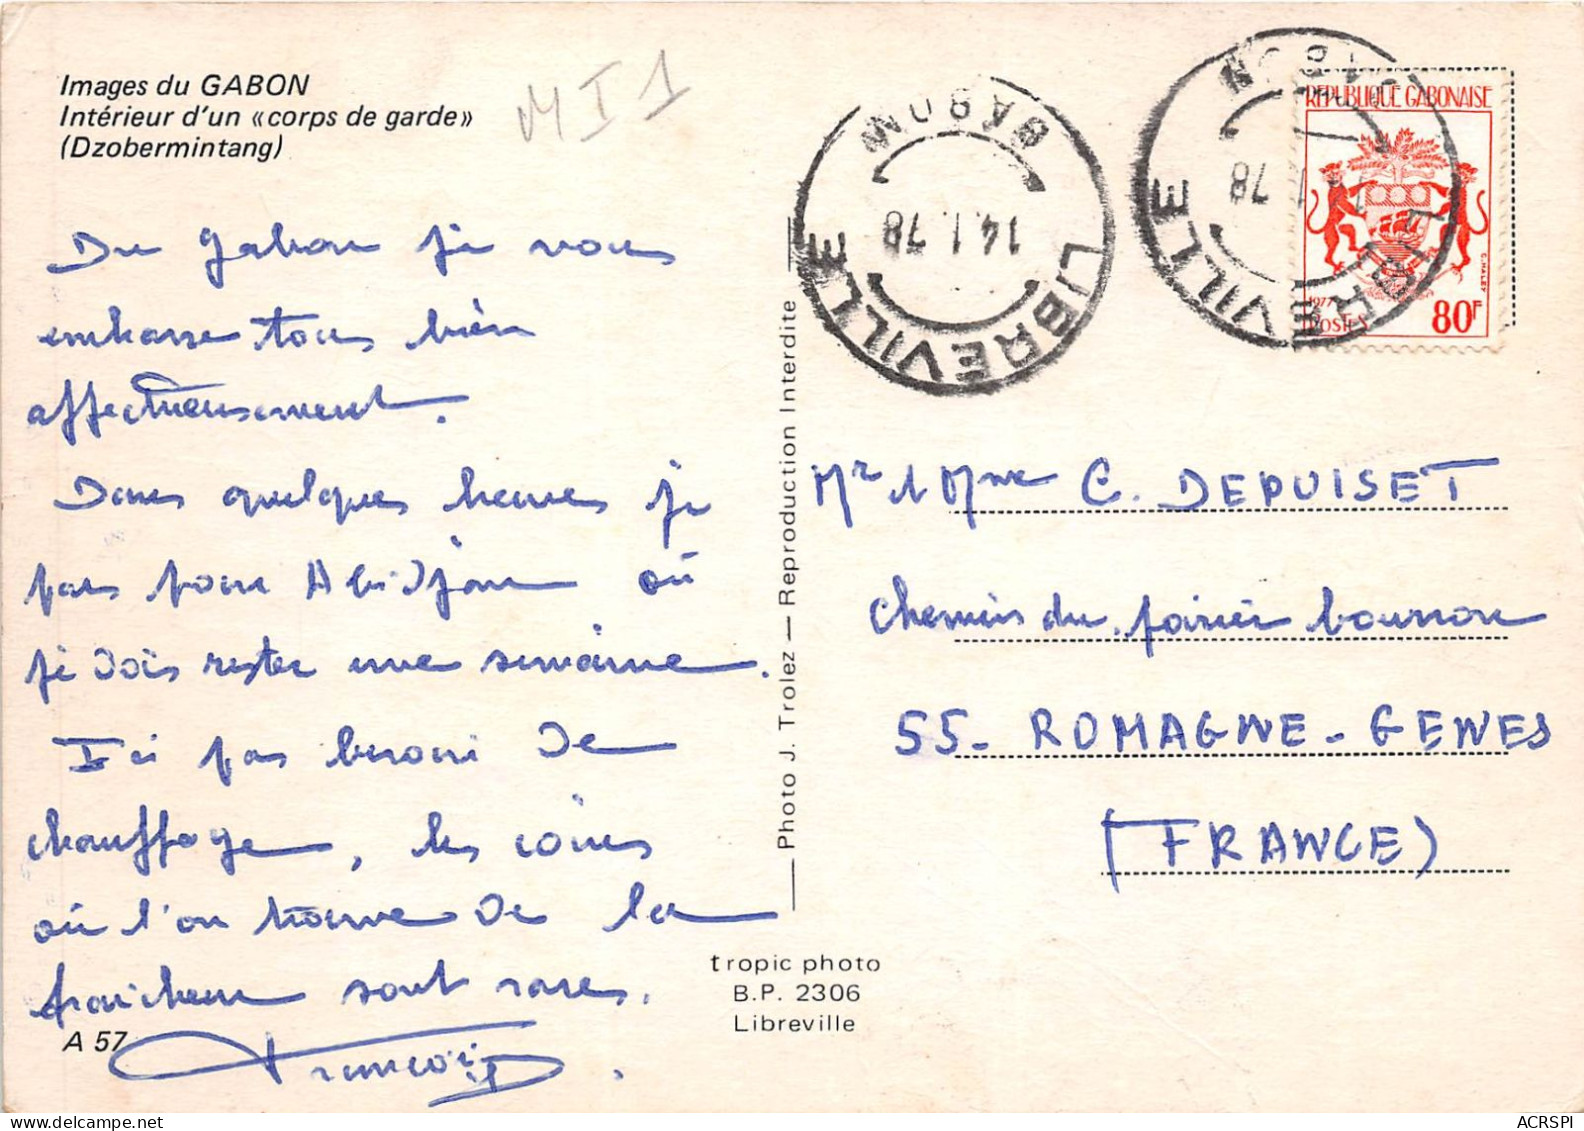 Images du GABON
Intérieur d'un «corps de garde»
(Dzobermintang)
MI1
Du Gabon je vous
embrasse tous bien
affectueusement.
Dans quelques heures je
pars pour Abidjan où
je dois rester une semaine.
Ici pas besoin de
chauffage, les coins
où l'on trouve de la
fraicheur sont rares.
François
A 57
Photo J. Trolez — Reproduction Interdite
tropic photo
B.P. 2306
Libreville
LIBREVILLE
14.1.78
GABON
LIBREVILLE
78
GABON
REPUBLIQUE GABONAISE
1977
POSTES
80F
Mr et Mme C. DEPUISET
Chemin du poirier
55- ROMAGNE-GENNES
(FRANCE)
ACRSPI